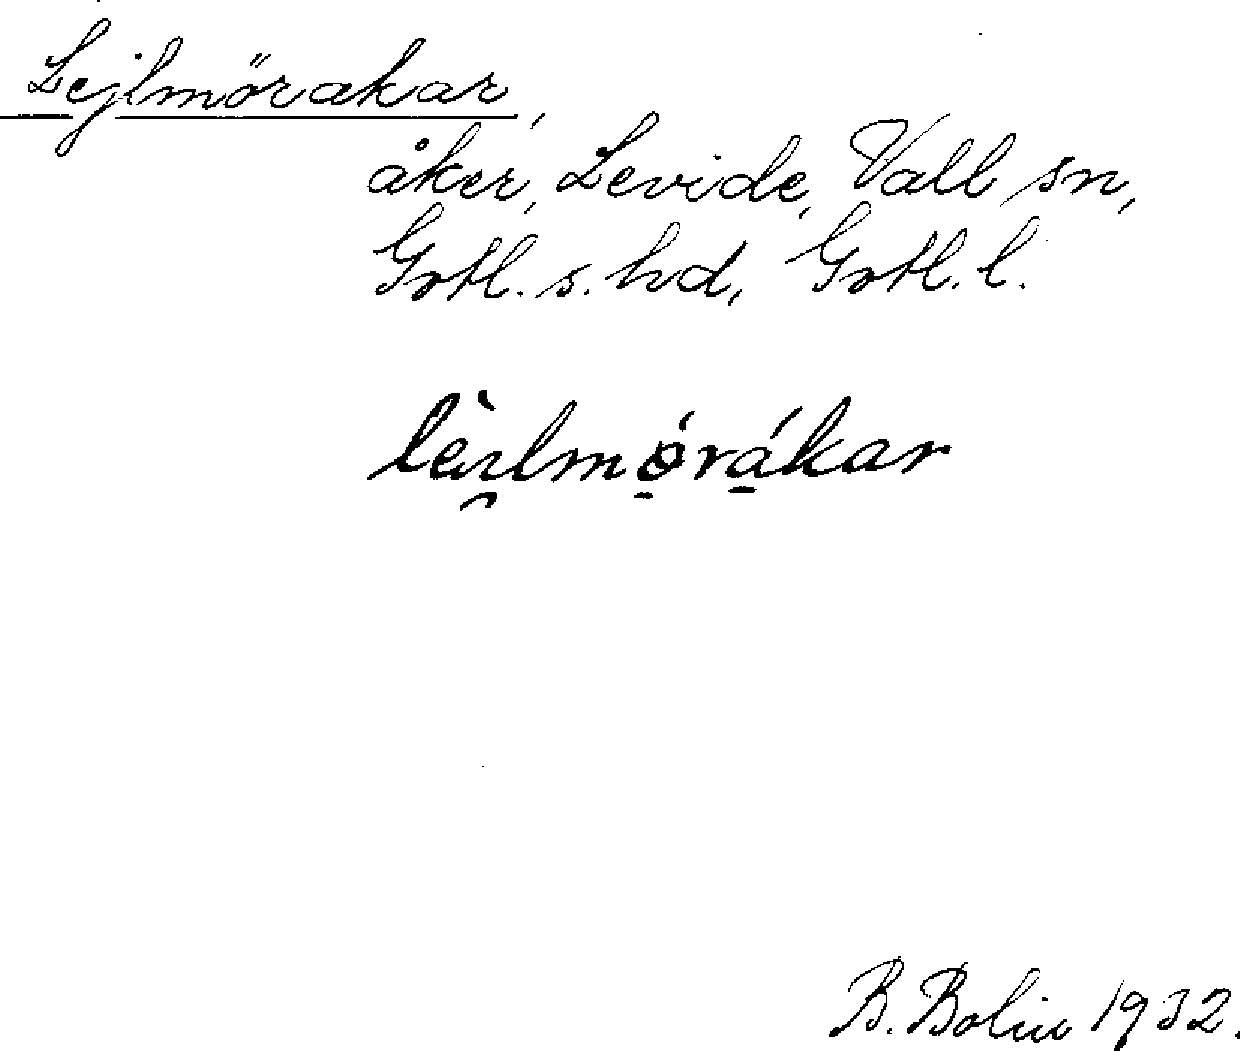 Lejlmörakar,
åker, Levide, Vall sn,
Gotl. s. hd, Gotl. l.
lèi̯lmo̱ra̱kar
B. Bolin 1932.